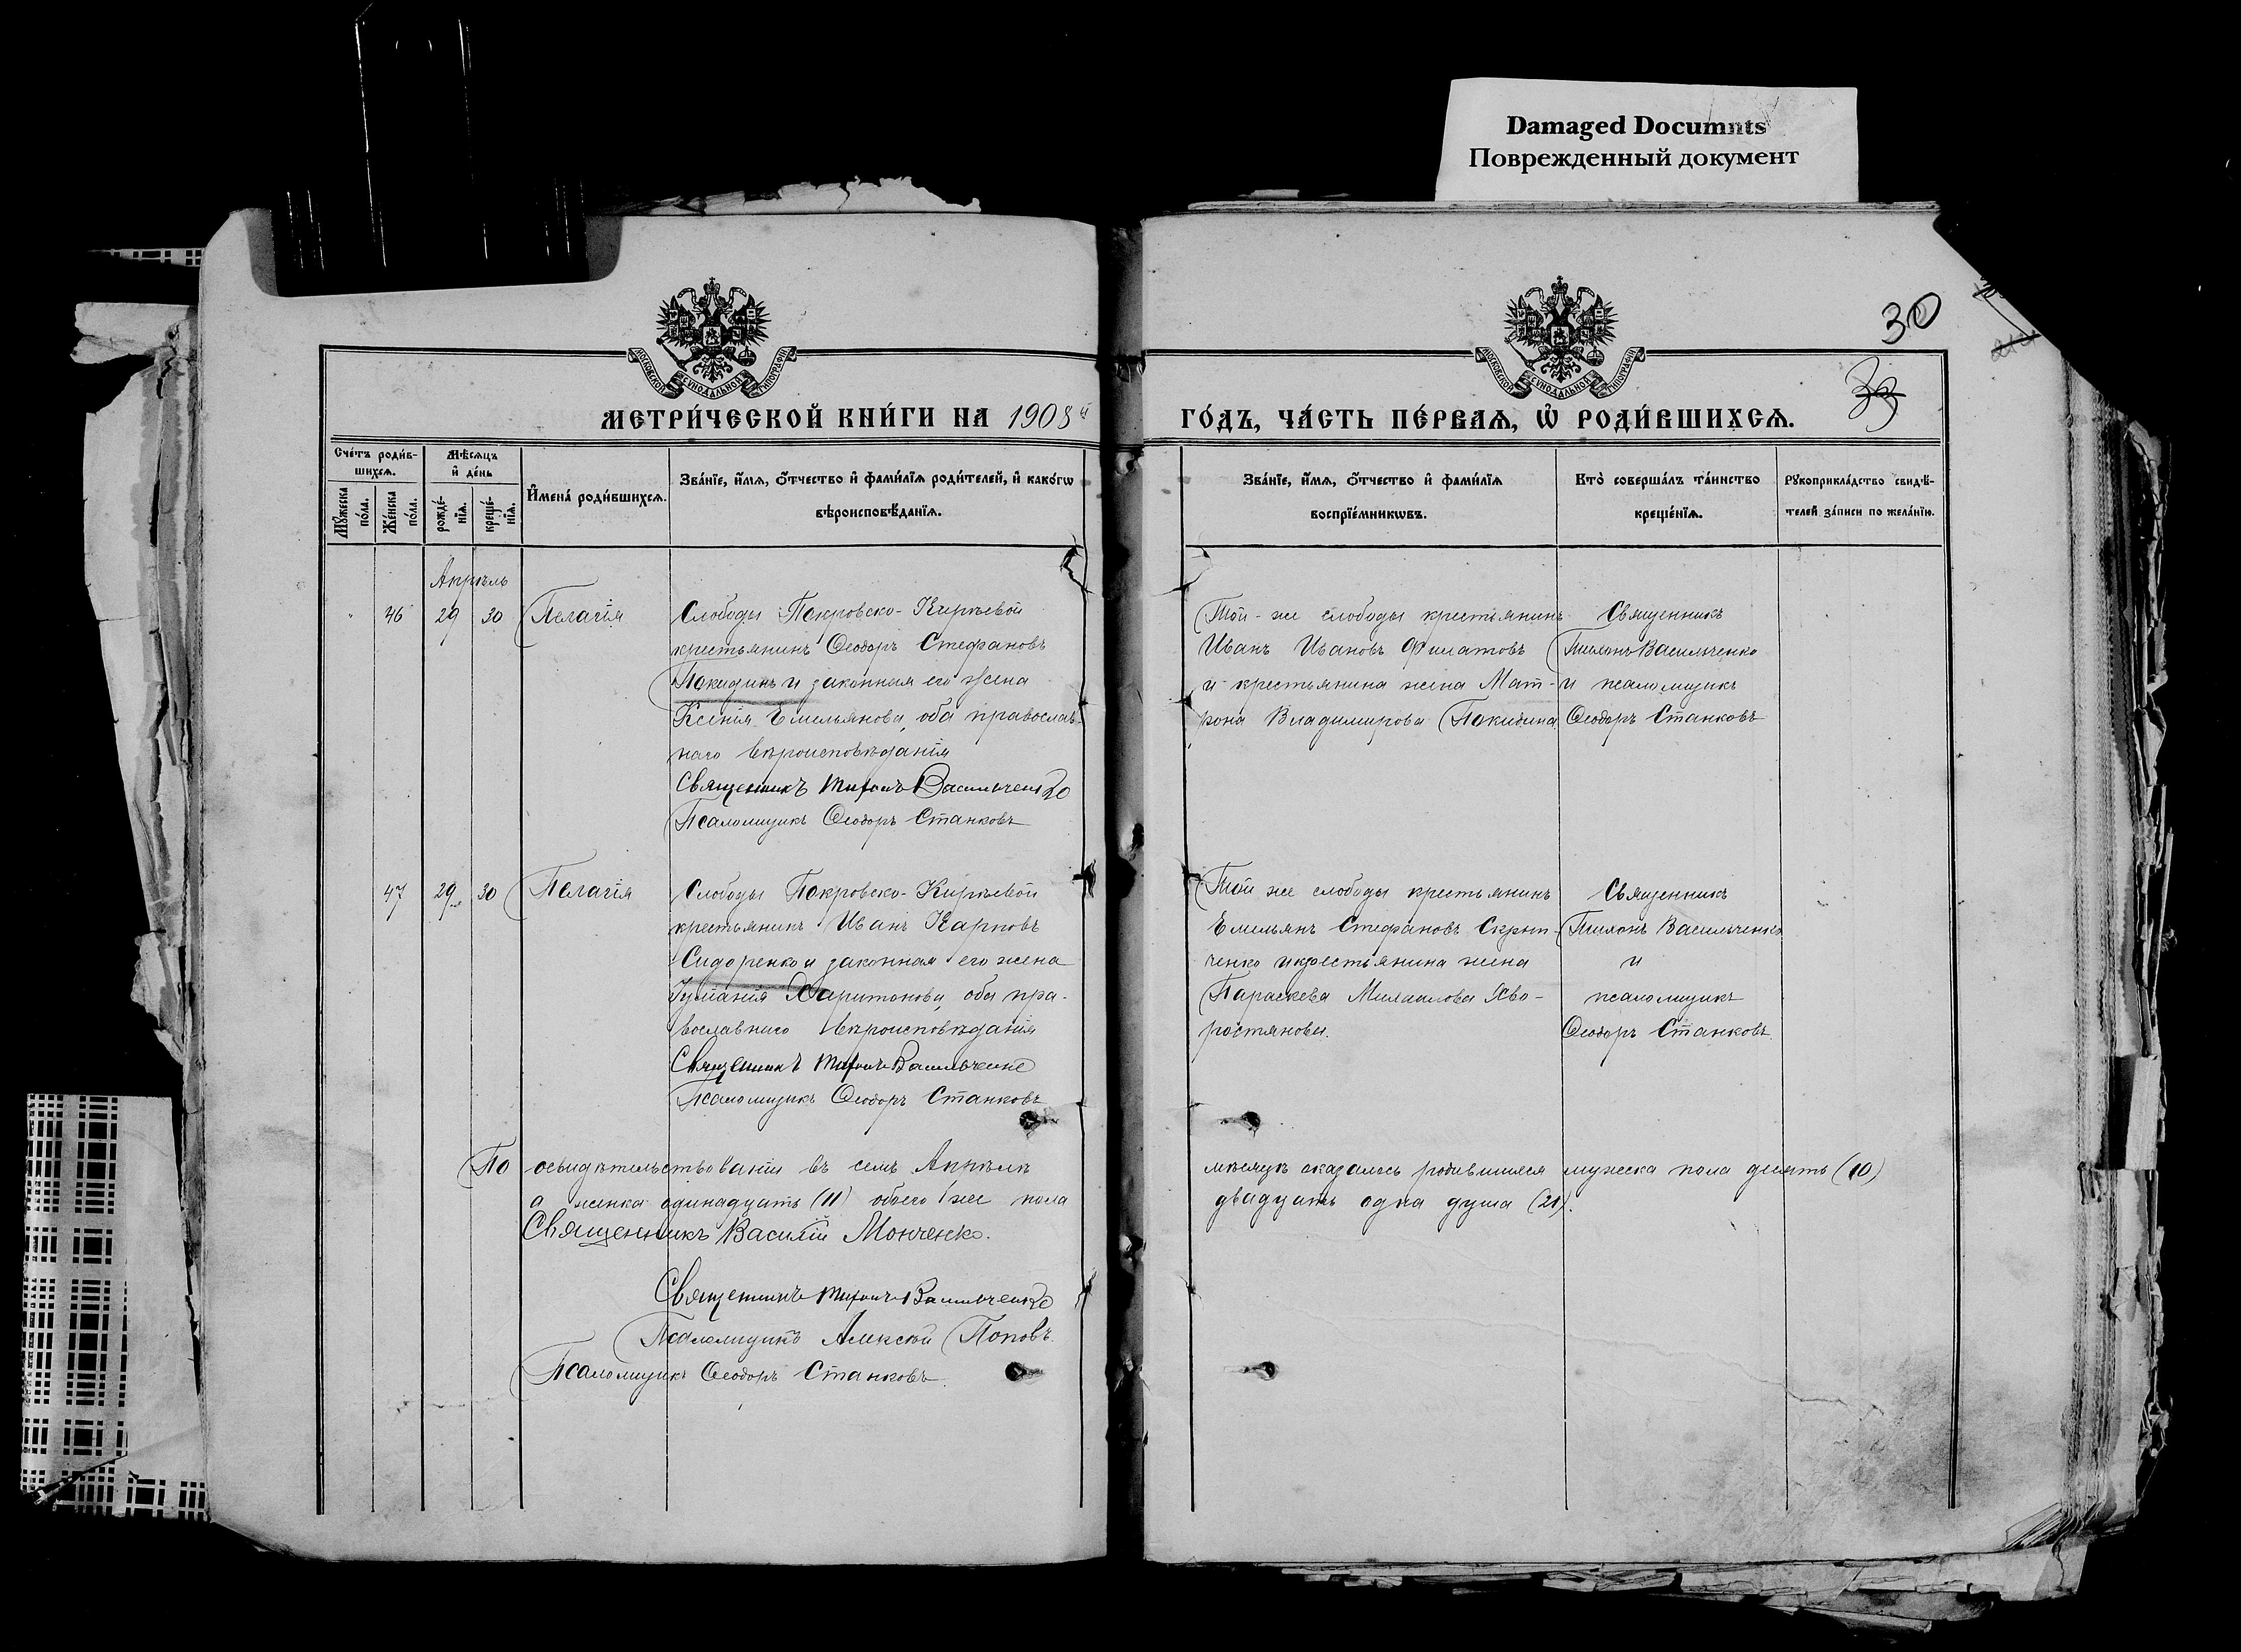 Damaged Documnts
Поврежденный документ
30
39
МОСКОВСКОЙ СѴНОДАЛЬНОЙ ТИПОГРАФІИ
МОСКОВСКОЙ СѴНОДАЛЬНОЙ ТИПОГРАФІИ
МЕТРИ́ЧЕСКОЙ КНИ́ГИ НА 1908й
ГО́ДЪ, ЧА́СТЬ ПЕ́РВАѦ, Ѡ҆ РОДИ́ВШИХСѦ.
Сче́тъ роди́в-
шихсѧ.
Мꙋжеска по́ла.
Же́нска по́ла.
Мѣсѧцъ
и҆ де́нь
рожде́-
нїѧ.
креще́-
нїѧ.
И҆мена̀ роди́вшихсѧ.
Зва́нїе, и҆́мѧ, ѻ҆́тчество и҆ фами́лїѧ роди́телей, и҆ како́гѡ
вѣроисповѣ́данїѧ.
Зва́нїе, и҆́мѧ, ѻ҆́тчество и҆ фами́лїѧ
воспрїе́мникѡвъ.
Кто̀ соверша́лъ та́инство
креще́нїѧ.
Рꙋкоприкла́дство свидѣ́-
телей за́писи по жела́нїю.
Апрѣль
" 46 29 30 Пелагія
Слободы Покровско-Кирѣевой
крестьянинъ Ѳеодоръ Стефановъ
Покидинъ и законная его жена
Ксенія Емельянова, оба православ-
наго вѣроисповѣданія
Священникъ Тихонъ Васильченко
Псаломщикъ Ѳеодоръ Станковъ
Той-же слободы крестьянинъ
Иванъ Ивановъ Филатовъ
и крестьянина жена Мат-
рона Владимирова Покидина
Священникъ
Тихонъ Васильченко
и псаломщикъ
Ѳеодоръ Станковъ
47 29 30 Пелагія
Слободы Покровско-Кирѣевой
крестьянинъ Иванъ Карповъ
Сидоренко и законная его жена
Іуліанія Харитонова, оба пра-
вославнаго вѣроисповѣданія
Священникъ Тихонъ Васильченко
Псаломщикъ Ѳеодоръ Станковъ
Той же слободы крестьянинъ
Емельянъ Стефановъ Скрып-
ченко и крестьянина жена
Параскева Михаилова Хво-
ростянова.
Священникъ
Тихонъ Васильченко
и
псаломщикъ
Ѳеодоръ Станковъ.
По освидѣтельствованіи въ семъ Апрѣлѣ мѣсяцѣ оказалось родившихся мужеска пола десять (10)
а женска одинадцать (11) обоего же пола двадцать одна душа (21).
Священникъ Василій Монченко.
Священникъ Тихонъ Васильченко
Псаломщикъ Алексѣй Поповъ.
Псаломщикъ Ѳеодоръ Станковъ.